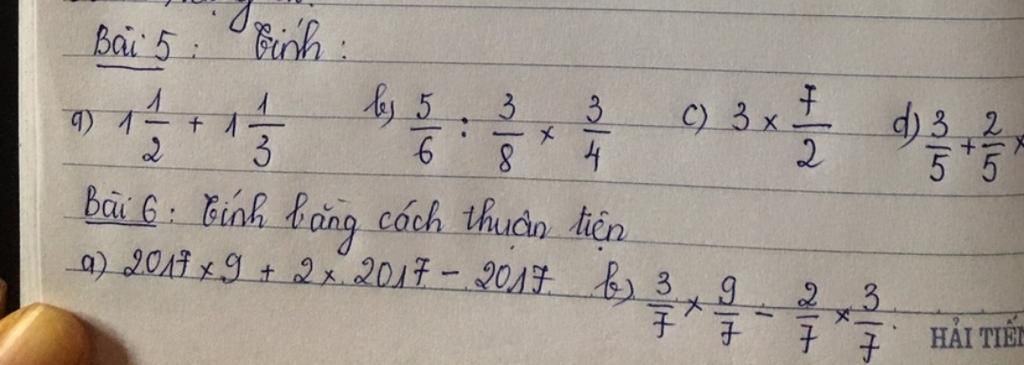 Bài 5 : Tính :
a) 1 1/2 + 1 1/3 b) 5/6 : 3/8 × 3/4 c) 3 × 7/2 d) 3/5 + 2/5 ×
Bài 6 : Tính bằng cách thuận tiện
a) 2017 × 9 + 2 × 2017 - 2017 b) 3/7 × 9/7 - 2/7 × 3/7.
HẢI TIẾN